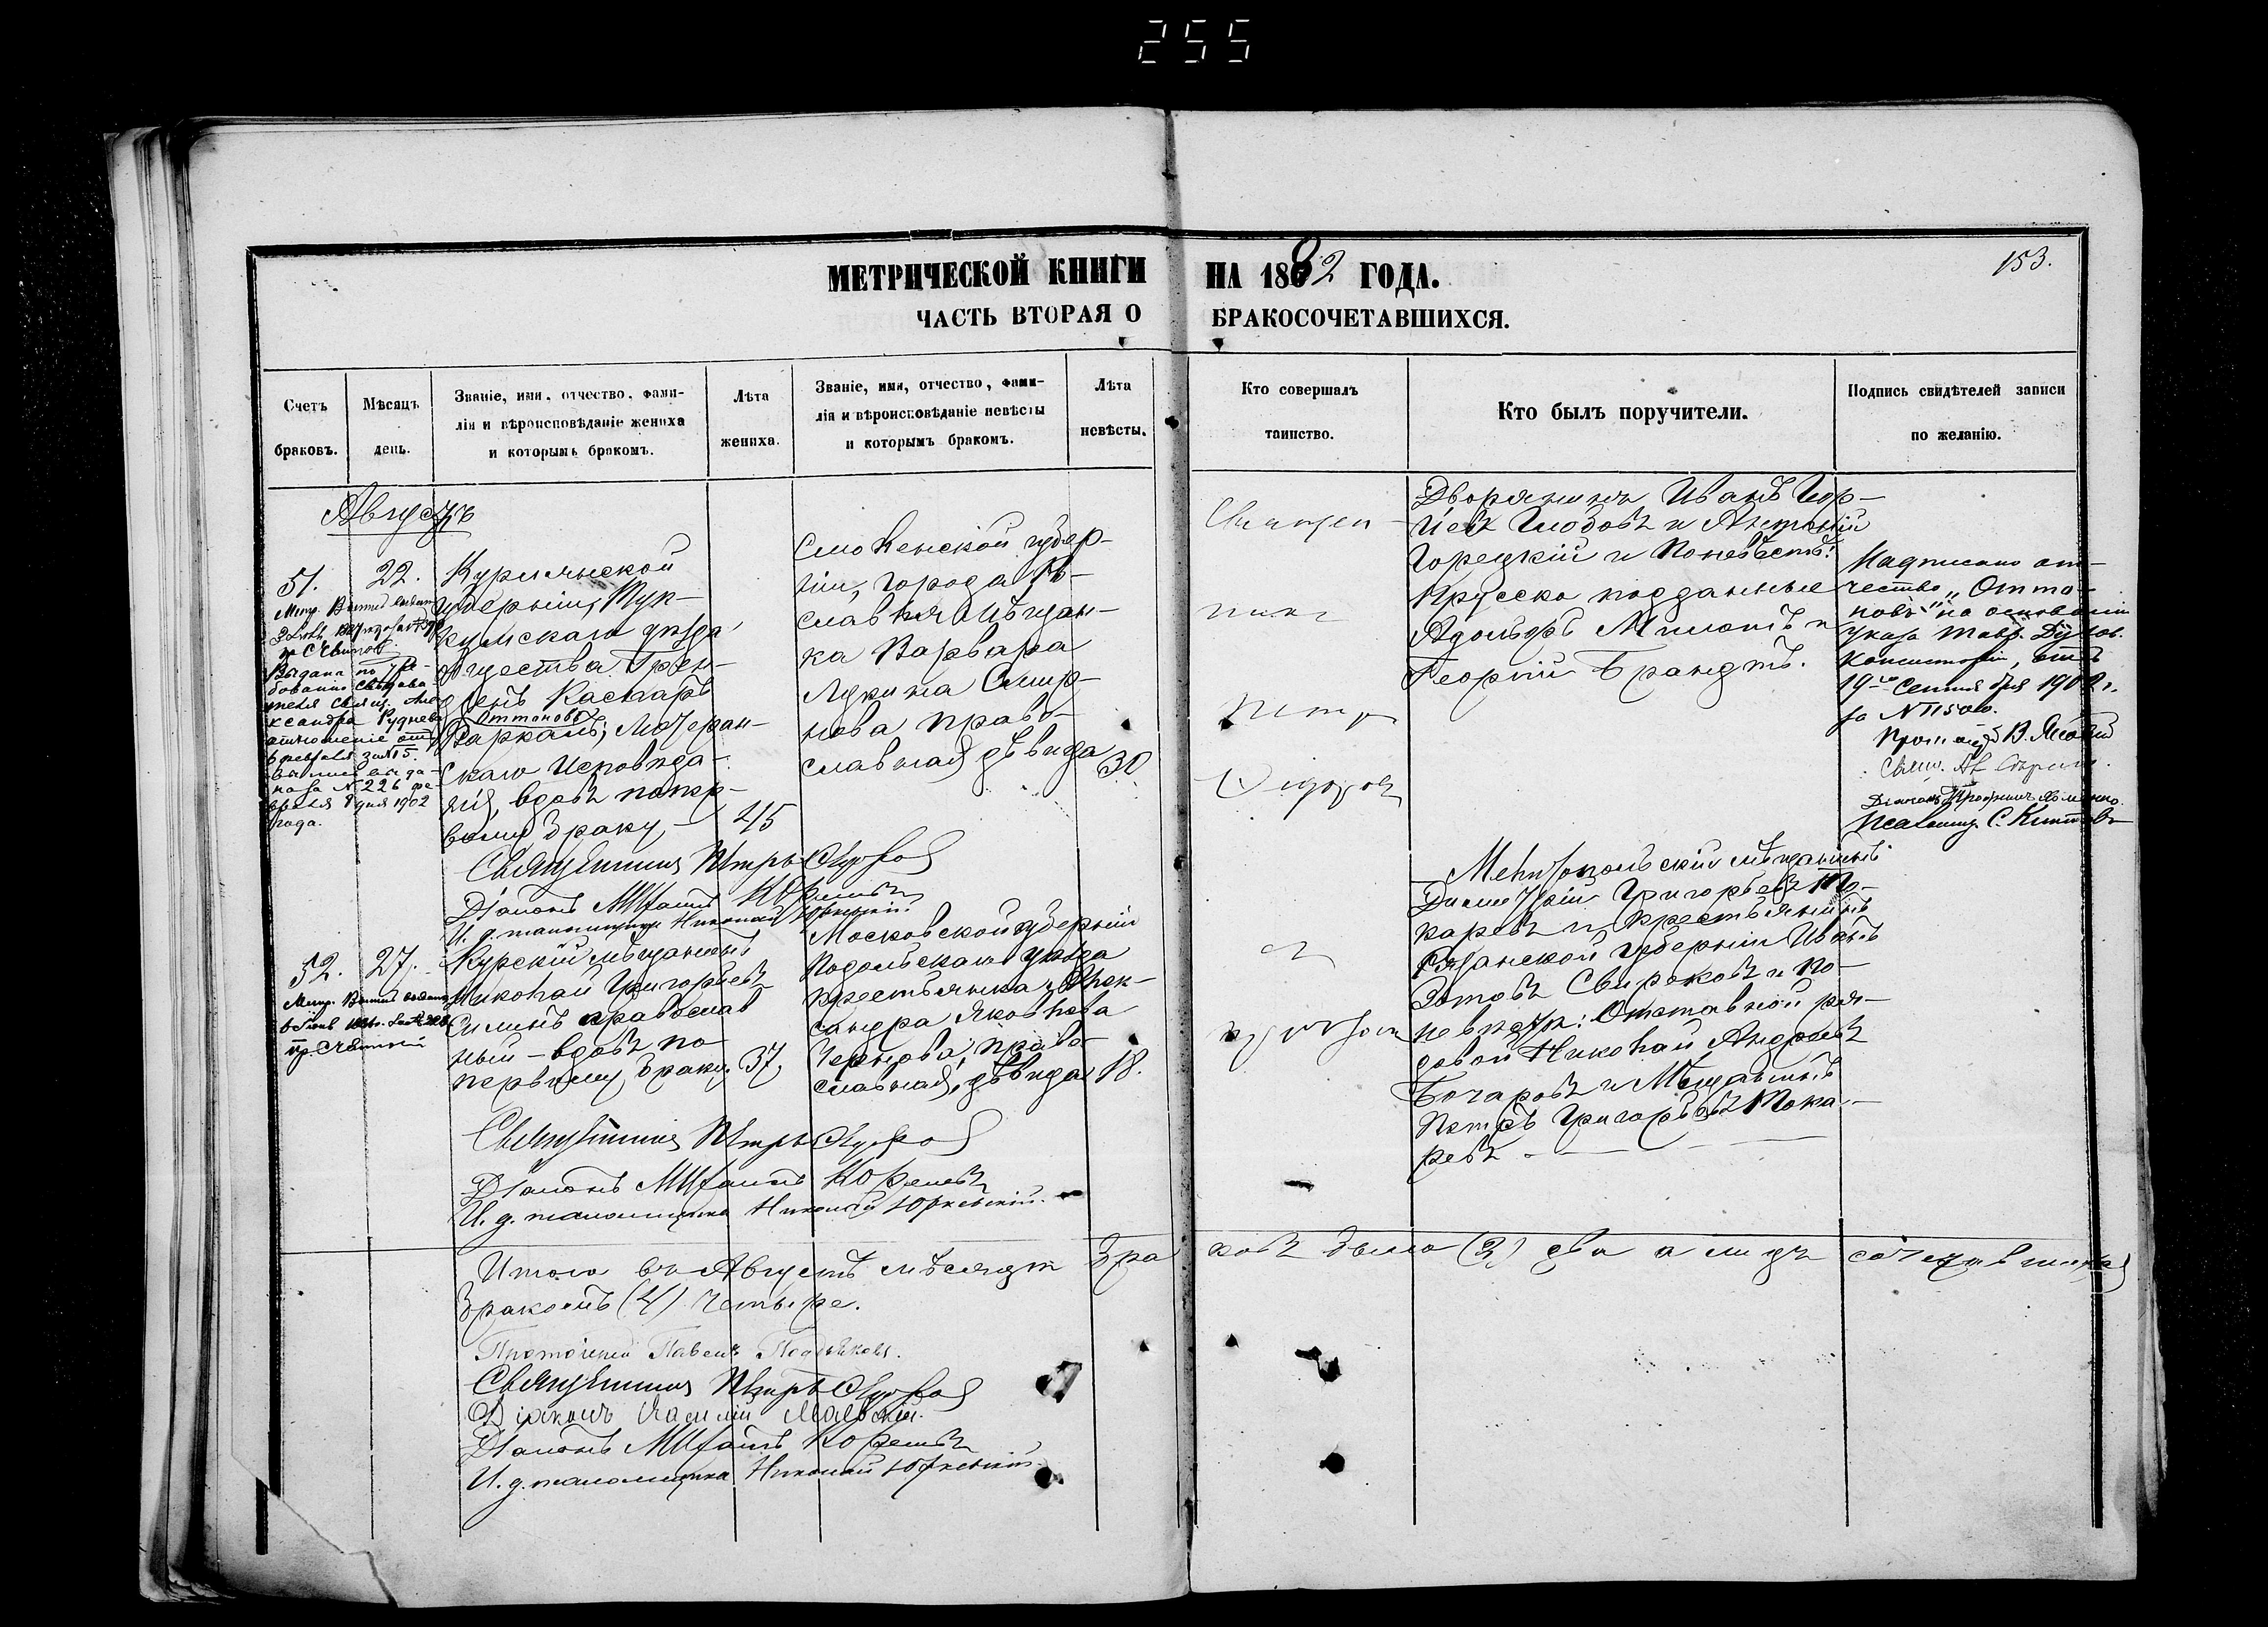 255
МЕТРИЧЕСКОЙ КНИГИ НА 1882 ГОДА.
153.
ЧАСТЬ ВТОРАЯ О БРАКОСОЧЕТАВШИХСЯ.
Счетъ
браковъ.
Мѣсяцъ
день.
Званіе, имя, отчество, фами-
лія и вѣроисповѣданіе жениха
и которымъ бракомъ.
Лѣта
жениха.
Званіе, имя, отчество, фами-
лія и вѣроисповѣданіе невѣсты
и которымъ бракомъ.
Лѣта
невѣсты.
Кто совершалъ
таинство.
Кто былъ поручители.
Подпись свидѣтелей записи
по желанію.
Августъ
51.
22.
Выдана по тре-
бованію
Александра Руднева
отношеніе отъ
6 февраля за № 15.
№ 226 фе-
враля 8 дня 1902
года.
Курляндской
губерніи, Тук-
кумскаго уѣзда
общества Грен-
Каспаръ
Оттоновъ
Лютеран-
скаго Исповѣда-
нія, вдовъ по пер-
вому браку,
45
Смоленской губер-
ніи, города Ро-
славля мѣщан-
ка Варвара
Лукина Смир-
нова право-
славная, дѣвица
30
Священ-
никъ
Петръ
Сидоровъ
Дворянинъ Иванъ Игор-
Глобовъ и Антоній
Горецкій и По невѣстѣ:
Прусско подданные
Адольфъ и
Георгій Брандтъ.
Надписано от-
чество „Отто-
новъ" на основаніи
указа Тавр. Духов.
Консисторіи, отъ
19го Сентября 1902 г.
за № 11500.
Священникъ Петръ Сидоровъ
Діаконъ Михаилъ Кореневъ
И. д. псаломщика Николай Юркевскій.
52.
27.
Курскій мѣщанинъ
Николай Григорьевъ
Силинъ православ
ный - вдовъ по
первому браку.
37.
Московской губерніи
Подольскаго уѣзда
крестьянка, Алек-
сандра Яковлева
Чернова, право-
славная, дѣвица
18.
Мелитопольскій мѣщанинъ
Димитрій Григорьевъ То-
каревъ и крестьянинъ
Рязанской губерніи Иванъ
Зотовъ Свираковъ и По
невѣстѣ: Отставной ря-
довой Николай Андреевъ
Бочаровъ и Мѣщанинъ
Петръ Григорьевъ Тока-
ревъ
Священникъ Петръ Сидоровъ
Діаконъ Михаилъ Кореневъ
И. д. псаломщика Николай Юркевскій.
Итого въ Августѣ мѣсяцѣ бра ковъ было (2) два а лицъ сочетавшихся
бракомъ (4) четыре.
Протоіерей Павелъ
Священникъ Петръ Сидоровъ
Діаконъ Василій
Діаконъ Михаилъ Кореневъ
И. д. псаломщика Николай Юркевскій